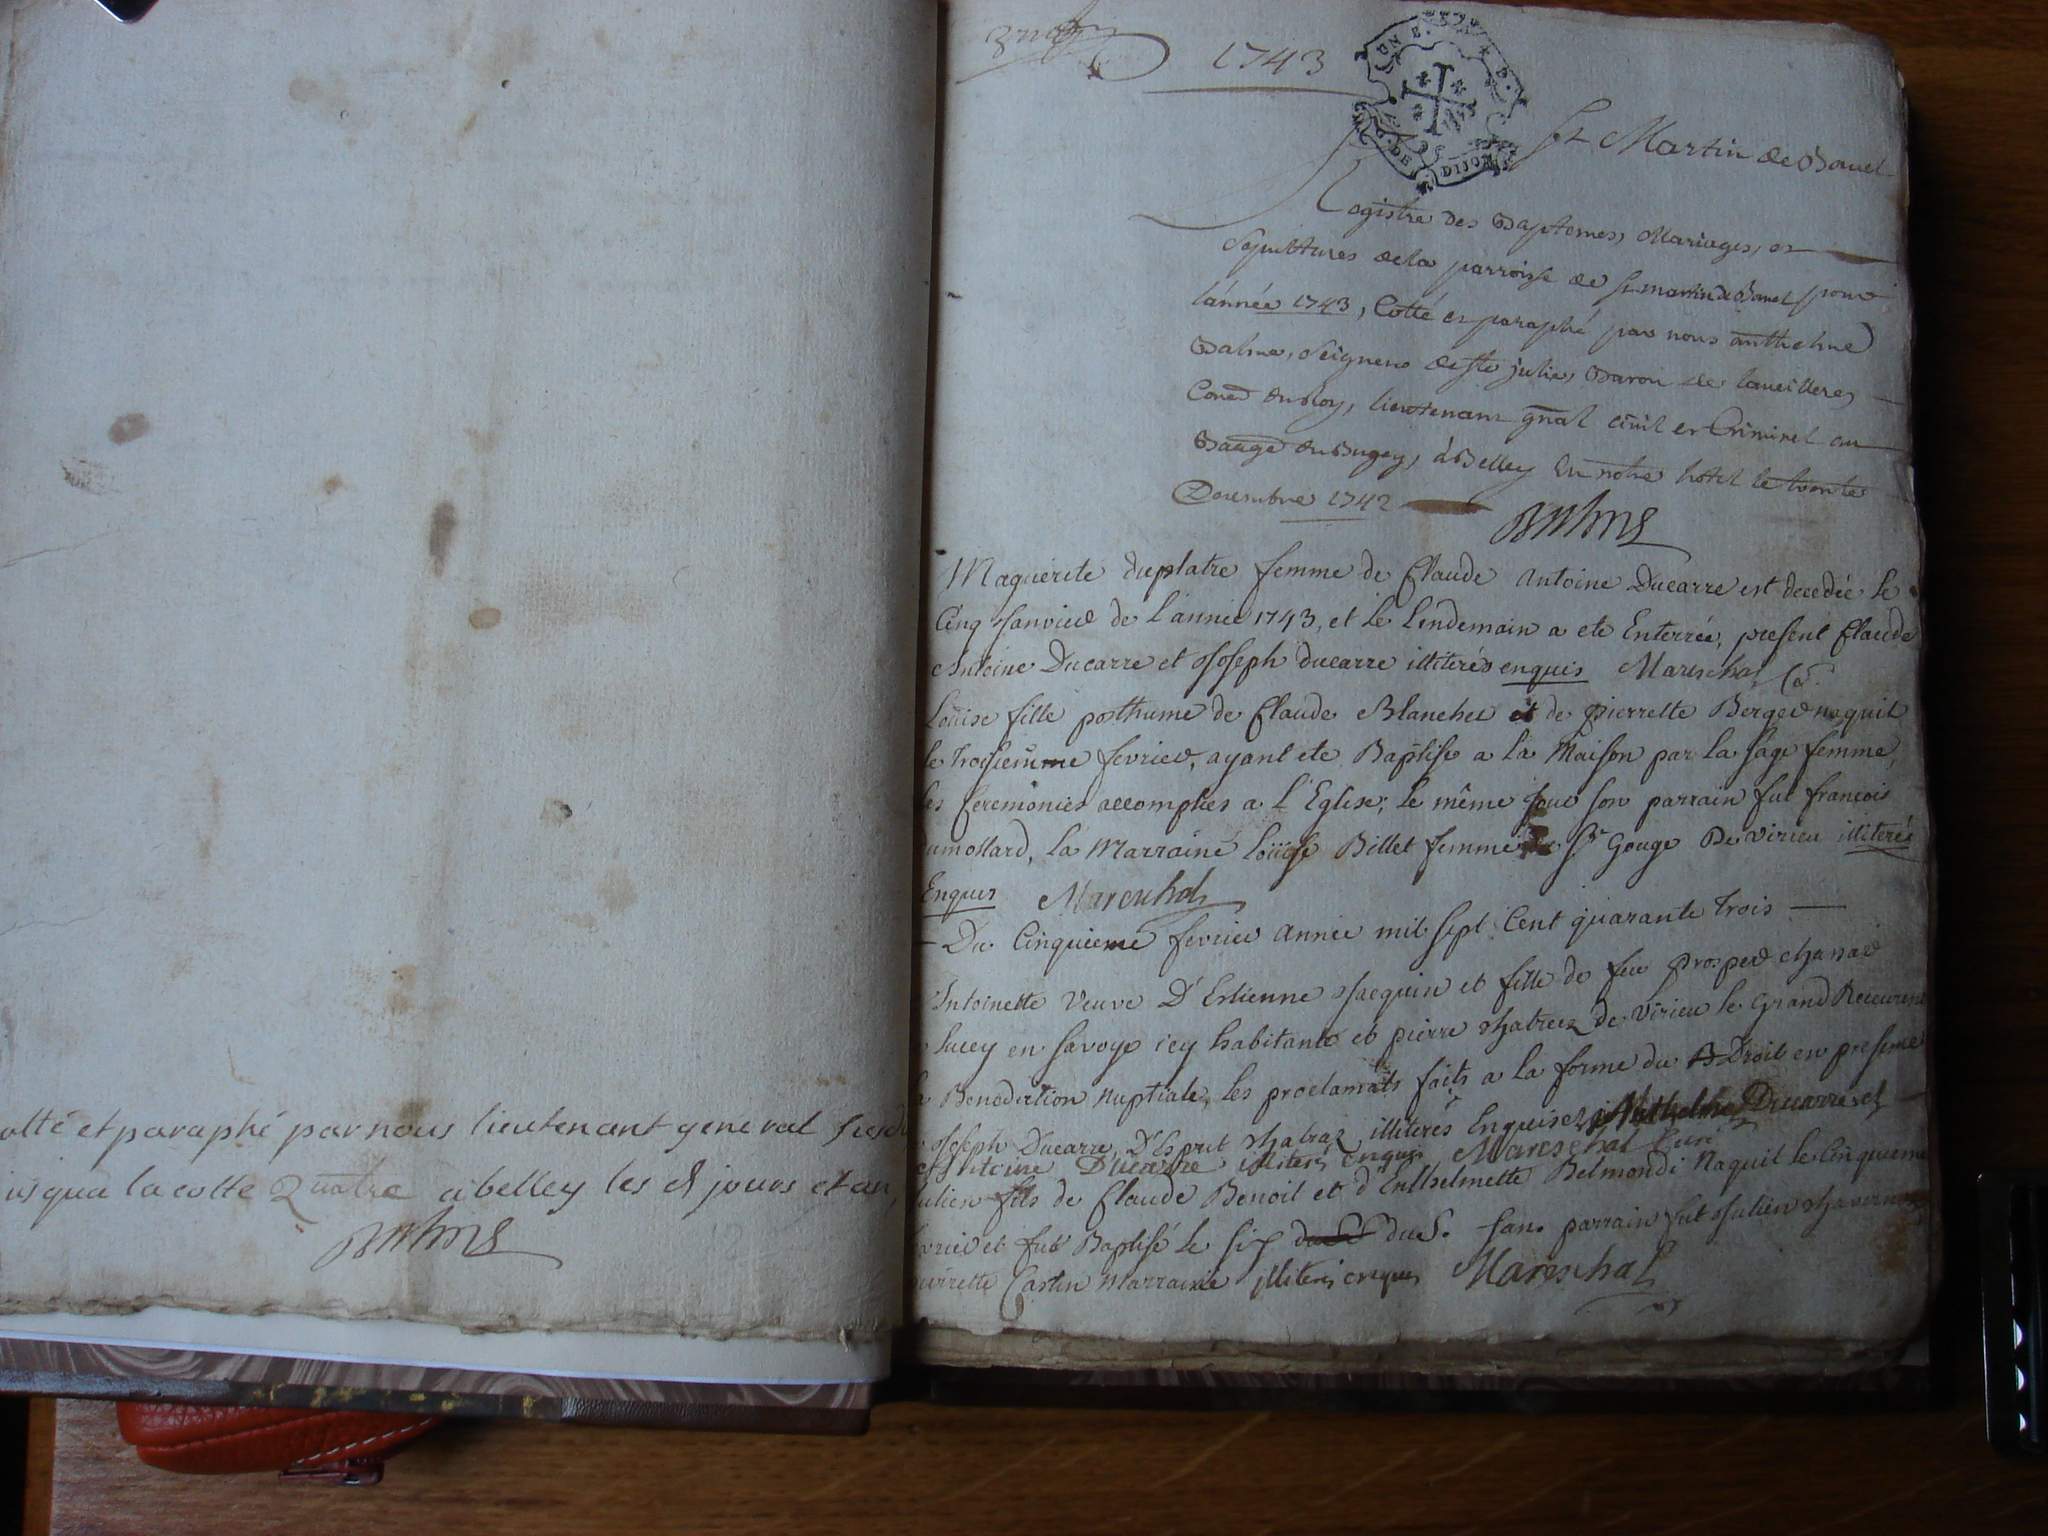 cotté et paraphé par nous lieutenant general susd
jusqua la cotte Quatre a belley les d jours et an,
1743
UN E.
DE DIJON
St Martin de Bavel
Registre des Baptemes, Mariages, et
Sepultures dela parroisse de St martin de Bavel pour
l'année 1743, Cotté et paraphé par nous anthelme
Balme, Seigneur de Ste julie, Baron de
Coner du Roy, lieutenant gñal civil et Criminel au
Baage du Bugey, à Belley En notre hotel le trente
Decembre 1742
Balme
Maguerite duplatre femme de Claude Antoine Ducarre est decedée le
Cinq Janvier de l'année 1743, et le lendemain a ete Enterrée, present Claude
Antoine Ducarre et Joseph ducarre illiterés enquis Mareschal
Loüise fille posthume de Claude Blanchet et de pierrette Berger naquit
le Troisieme fevrier, ayant ete Baptise a la Maison par la sage femme,
les Ceremonies accomplies a l'Eglise; le même jour son parrain fut francois
dumollard, la Marraine loüise Billet femme de Sr Gouge De virieu illiterés
Enquis Mareschal
Du Cinquieme fevrier année mil sept Cent quarante Trois
Antoinette Veuve D'Estienne Jacquin et fille de feu prosper chanae
lucey en Savoye icy habitante et pierre de virieu le Grand Recevrent
la Benediction nuptiale, les proclamats faits a la forme du Droit en presence
Joseph Ducarre, D'Esprit illiterés Enquises, Anthelme Ducarre et
Antoine Ducarre illiterés enquis Mareschal Curé
Julien fils de Claude Benoit et d'Enthelmette Belmondi Naquit le Cinquieme
fevrier et fut Baptisé le six dud. Son parrain fut Julien
pierrette Castin Marraine illiterés enquis Mareschal